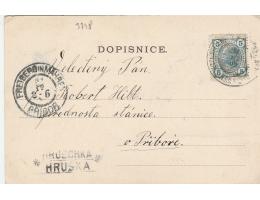 3718
DOPISNICE.
Velectěný Pán
Robert Hibl
přednosta stánice,
v Příboře.
FREIBERG IN MÄHREN
2-6
PŘÍBOR
HRUSCHKA
HRUŠKA